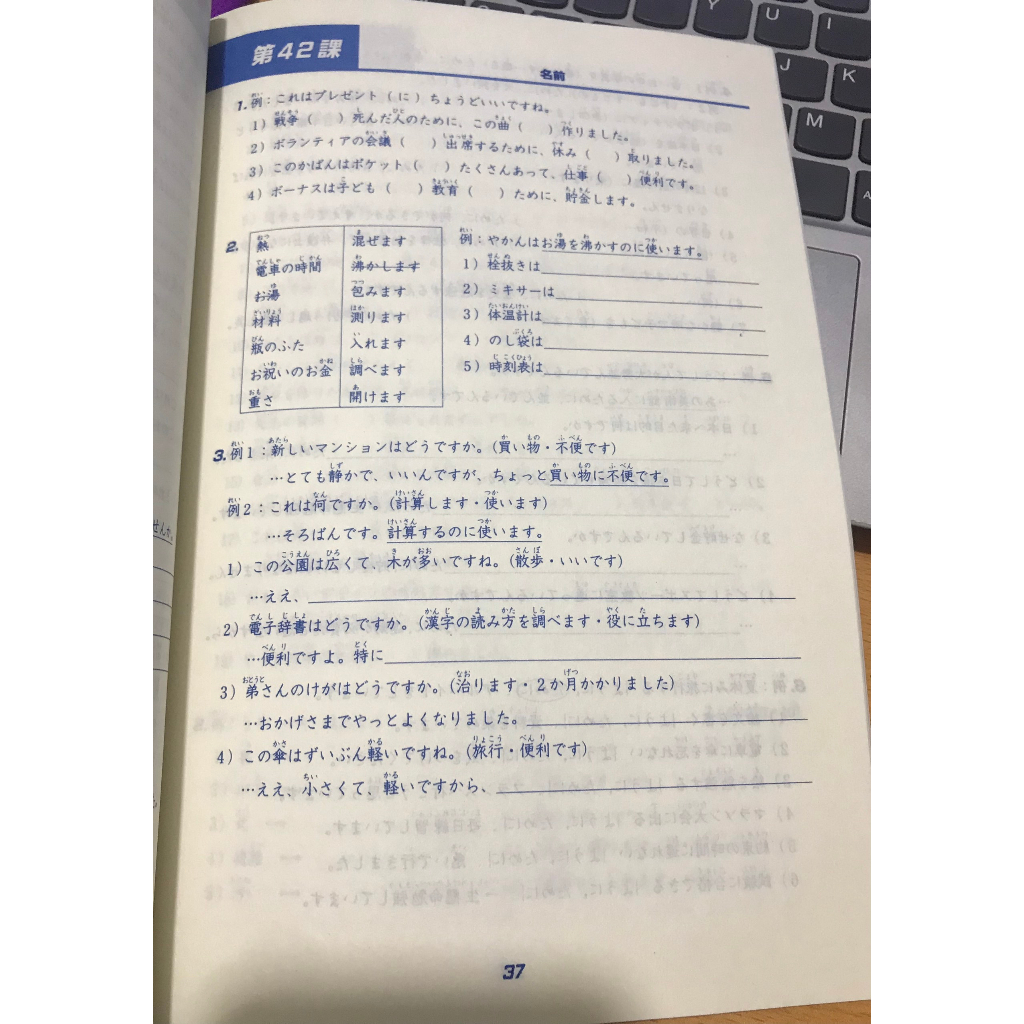 第42課
名前
1. 例：これはプレゼント（ に ）ちょうどいいですね。
1）戦争（　）死んだ人のために、この曲（　）作りました。
2）ボランティアの会議（　）出席するために、休み（　）取りました。
3）このかばんはポケット（　）たくさんあって、仕事（　）便利です。
4）ボーナスは子ども（　）教育（　）ために、貯金します。
2.
熱　混ぜます
電車の時間　沸かします
お湯　包みます
材料　測ります
瓶のふた　入れます
お祝いのお金　調べます
重さ　開けます
例：やかんはお湯を沸かすのに使います。
1）栓抜きは
2）ミキサーは
3）体温計は
4）のし袋は
5）時刻表は
3. 例1：新しいマンションはどうですか。（買い物・不便です）
…とても静かで、いいんですが、ちょっと買い物に不便です。
例2：これは何ですか。（計算します・使います）
…そろばんです。計算するのに使います。
1）この公園は広くて、木が多いですね。（散歩・いいです）
…ええ、
2）電子辞書はどうですか。（漢字の読み方を調べます・役に立ちます）
…便利ですよ。特に
3）弟さんのけがはどうですか。（治ります・2か月かかりました）
…おかげさまでやっとよくなりました。
4）この傘はずいぶん軽いですね。（旅行・便利です）
…ええ、小さくて、軽いですから、
37
せんか。
Y
U
I
J
K
N
M